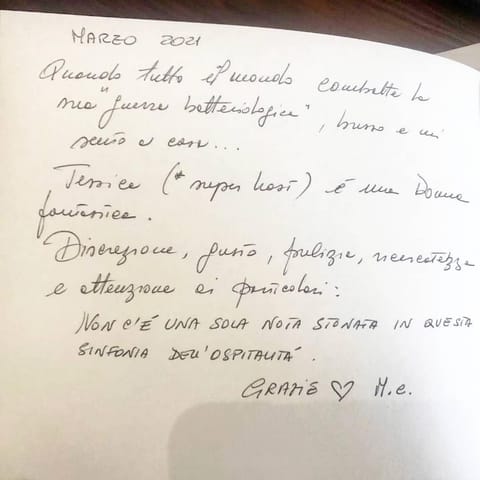 MARZO 2021
Quando tutto il mondo combatte la
sua "guerra batteriologica", busso e mi
sento a casa...
Jessica (* super host) é una Donna
fantastica.
Discrezione, gusto, pulizia, ricercatezza
e attenzione ai particolari:
NON C'É UNA SOLA NOTA STONATA IN QUESTA
SINFONIA DELL'OSPITALITÁ.
GRAZIE ♡ M.C.